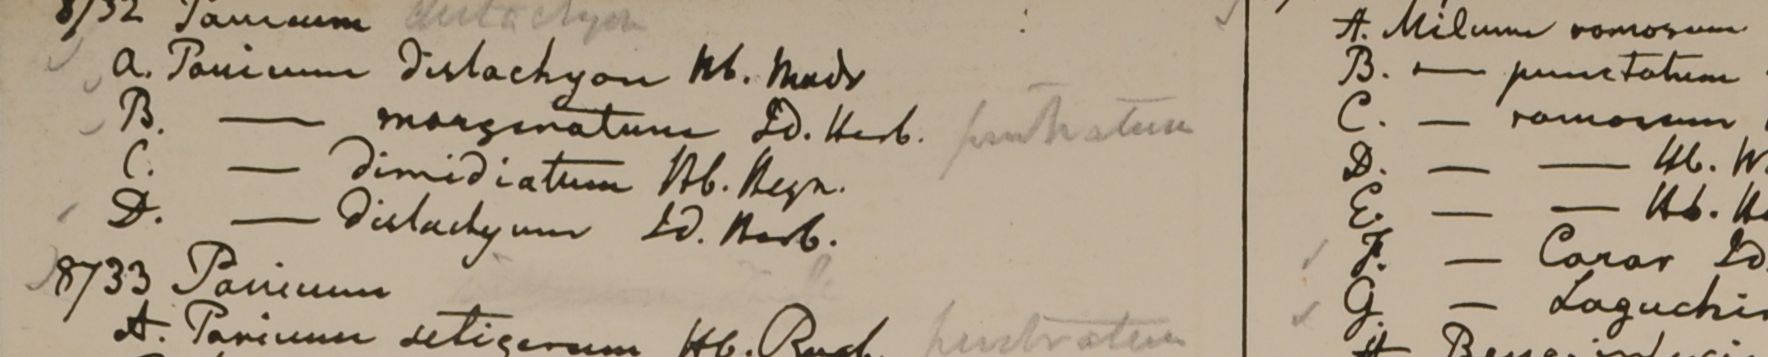 8732 Panicum distachyon
A. Panicum distachyon Hb. Madr
B. — marginatum Id. Herb.
C. — dimidiatum Hb. Heyn.
D. — distachyum Id. Herb.
8733 Panicum
A. Panicum setigerum Hb. Roxb.
A. Milium ramosum
B. — punctatum
C. — ramosum
D. — — Hb. W.
E. — — Hb. He
F. — Coror Id.
G. — Laguchi
H.